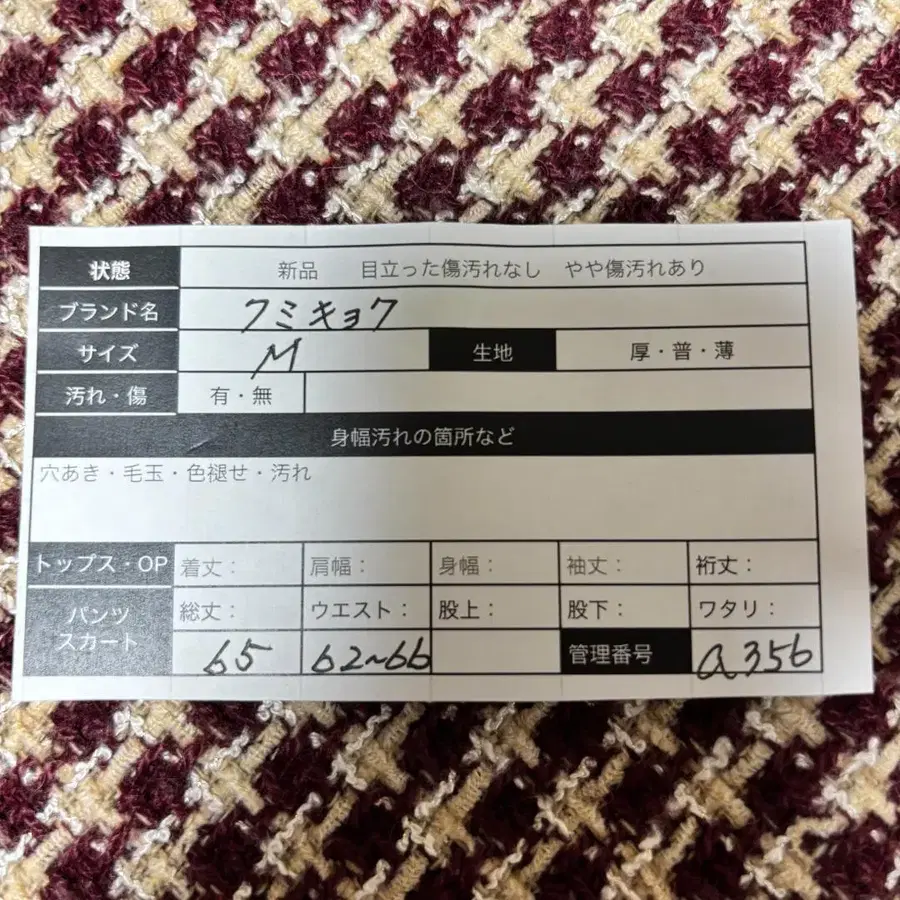 状態 新品 目立った傷汚れなし やや傷汚れあり
ブランド名 フミキョク
サイズ M 生地 厚・普・薄
汚れ・傷 有・無
身幅汚れの箇所など
穴あき・毛玉・色褪せ・汚れ
トップス・OP 着丈: 肩幅: 身幅: 袖丈: 裄丈:
パンツ スカート 総丈: ウエスト: 股上: 股下: ワタリ:
65 62~66 管理番号 a356